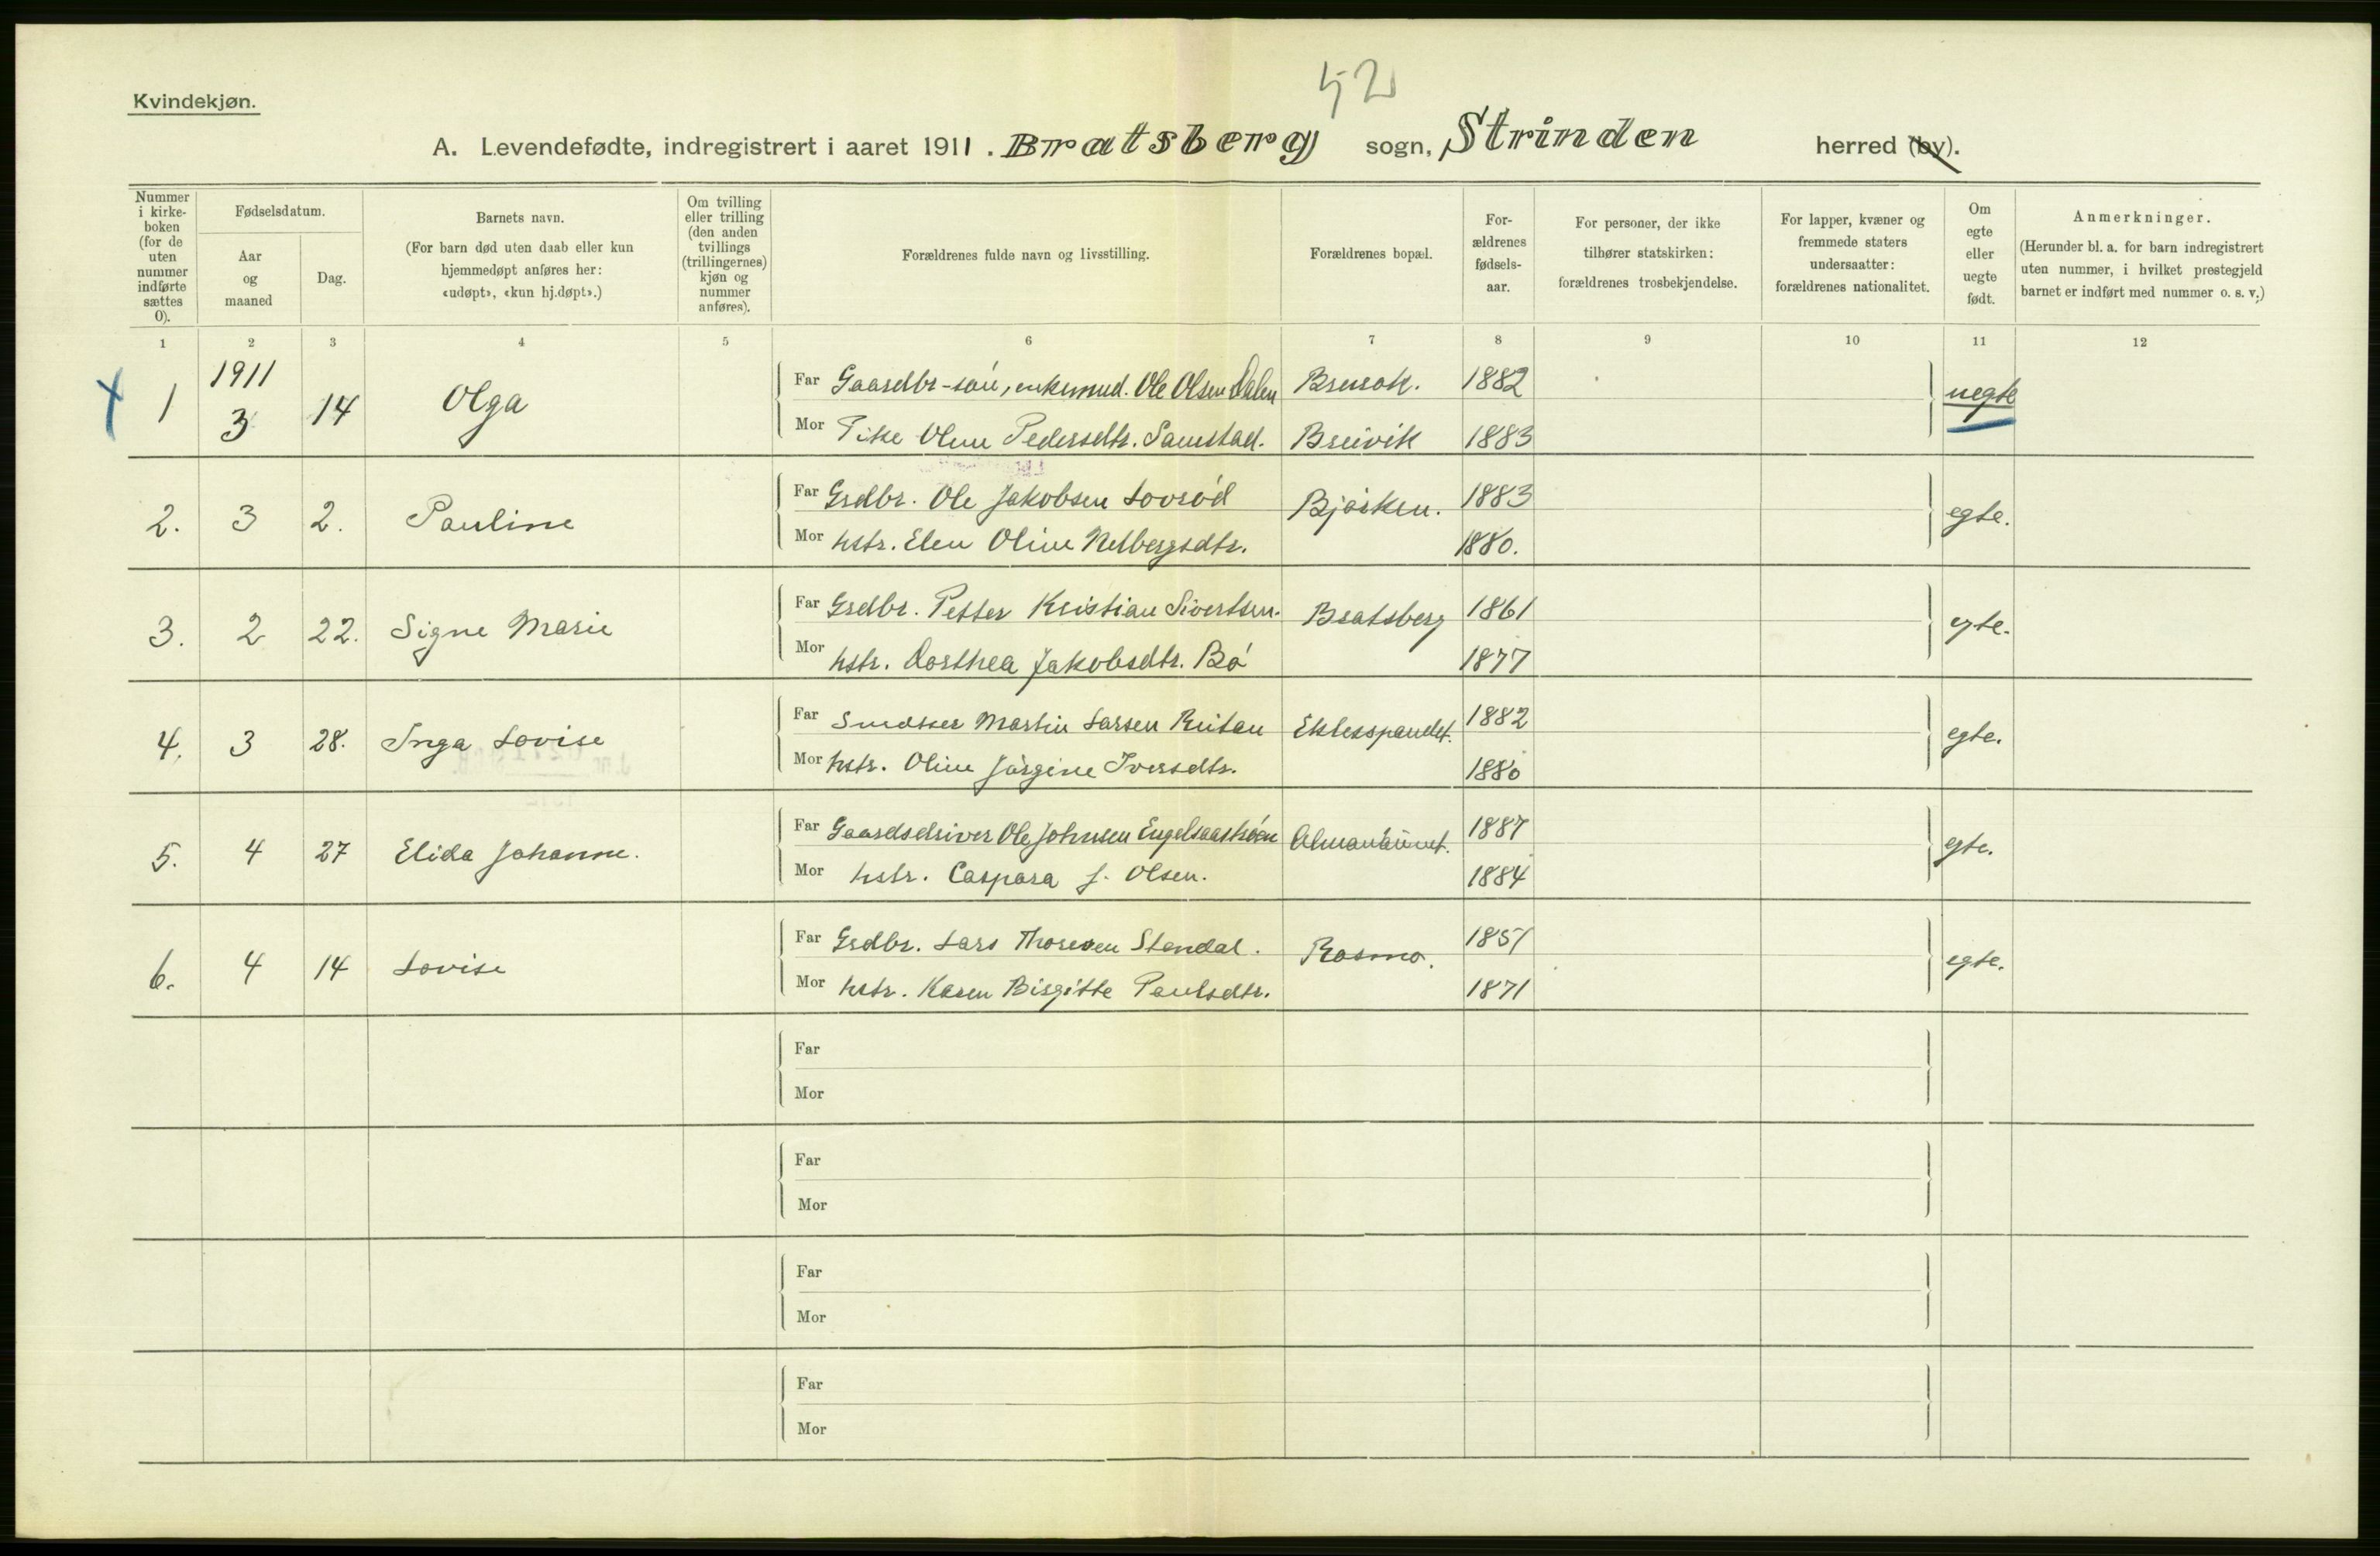 52
Kvindekjøn.
A. Levendefødte, indregistrert i aaret 1911. Bratsberg sogn, Strinden herred (by).
Nummer i kirke-boken (for de uten nummer indførte sættes 0).
Fødselsdatum.
Aar og maaned
Dag.
Barnets navn.
(For barn død uten daab eller kun hjemmedøpt anføres her: «udøpt», «kun hj.døpt».)
Om tvilling eller trilling (den anden tvillings (trillingernes) kjøn og nummer anføres).
Forældrenes fulde navn og livsstilling.
Forældrenes bopæl.
For-ældrenes fødsels-aar.
For personer, der ikke tilhører statskirken: forældrenes trosbekjendelse.
For lapper, kvæner og fremmede staters undersaatter: forældrenes nationalitet.
Om egte eller uegte født.
Anmerkninger.
(Herunder bl. a. for barn indregistrert uten nummer, i hvilket prestegjeld barnet er indført med nummer o. s. v.)
1 2 3 4 5 6 7 8 9 10 11 12
1 1911 3 14 Olga Far Gaardbr-sön, Ole Olsen Dalen 1882 uegte
Mor Pike Oline Pedersdtr. Samstad. Breivik 1883
2. 3 2. Pauline Far Grdbr. Ole Jakobsen Lovröd Björken. 1883 egte.
Mor hstr. Elen Oline 1880.
3. 2 22. Signe Marie Far Grdbr. Petter Kristian Sivertsen. Bratsberg 1861 egte.
Mor hstr. Dorthea Jakobsdtr. Bö 1877
4. 3 28. Inga Lovise Far Martin Larsen Reitan 1882 egte.
Mor hstr. Oline Jörgine Iversdtr. 1880
5. 4 27 Elida Johanne. Far Gaardsdriver Ole Johnsen 1887 egte.
Mor hstr. Caspara J. Olsen. 1884
6. 4 14 Lovise Far Grdbr. Lars Thoresen Stendal. Rosmo. 1857 egte.
Mor hstr. Karen Birgitte Paulsdtr. 1871
Far
Mor
Far
Mor
Far
Mor
Far
Mor